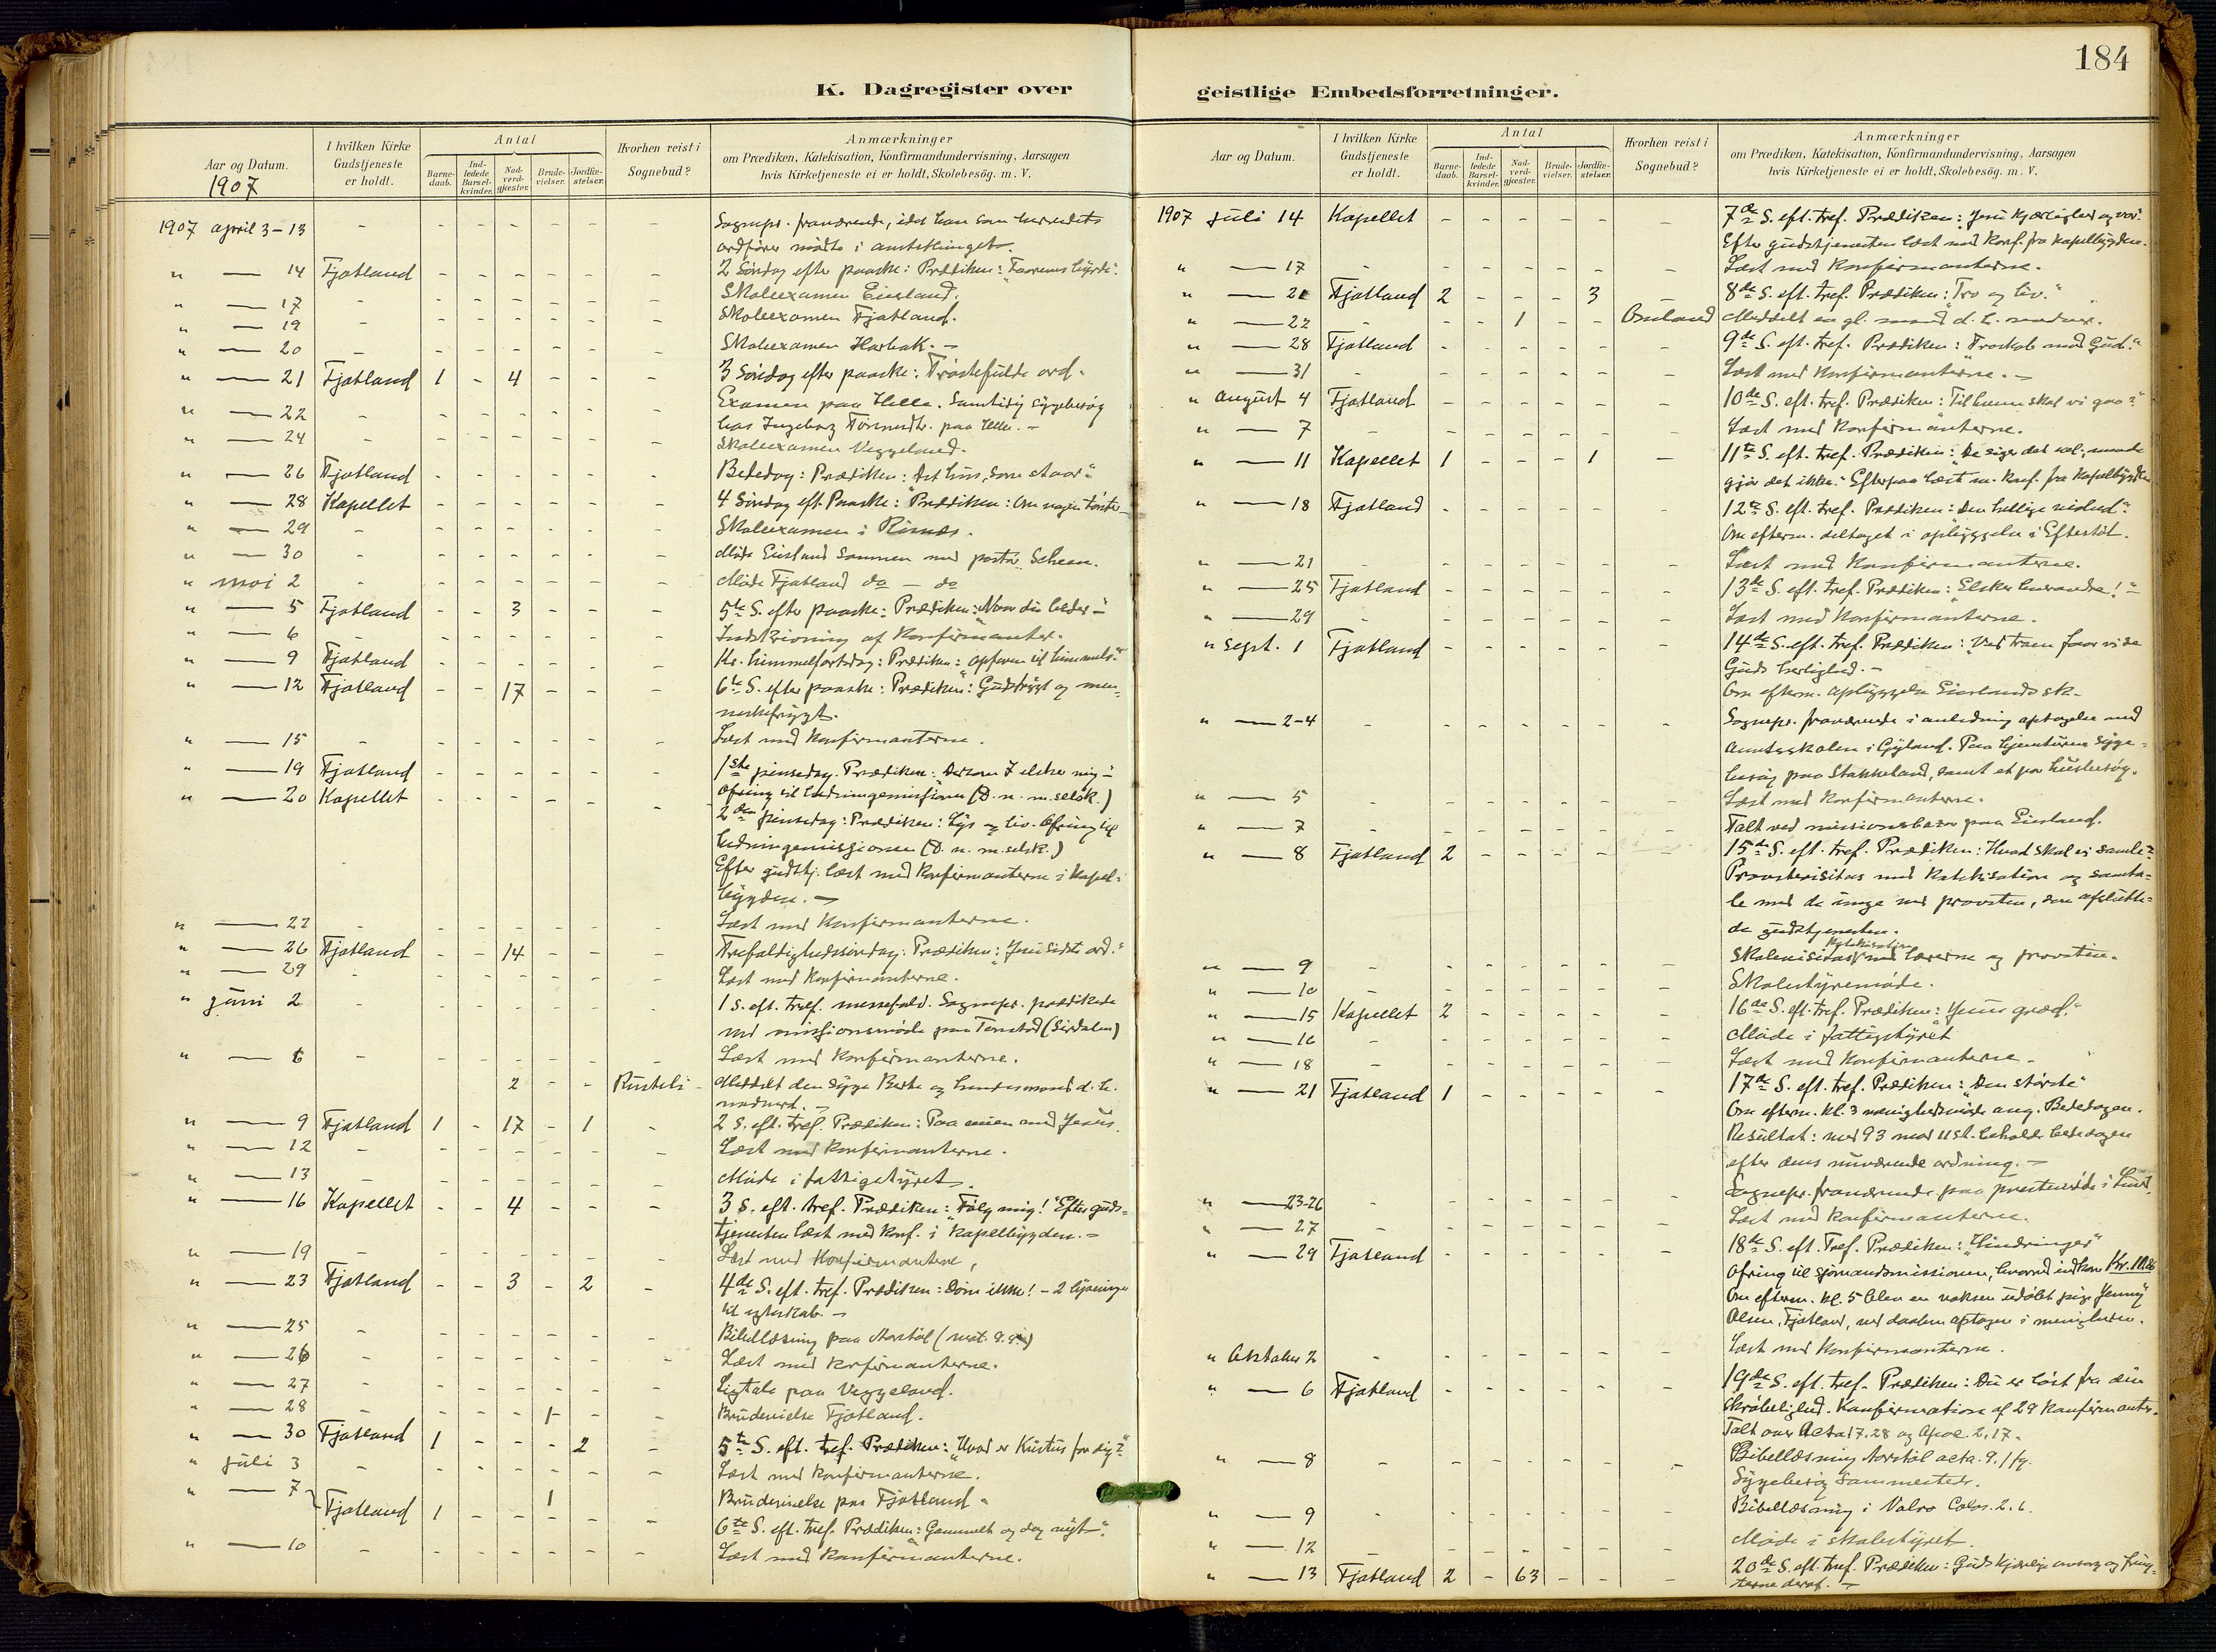 184
K. Dagregister over
Aar og Datum. I hvilken Kirke Gudstjeneste er holdt. Antal Barnedaab. Indledede Barselkvinder. Nadverdgjæster. Brudevielser. Jordfæstelser. Hvorhen reist i Sognebud? Anmærkninger om Prædiken, Katekisation, Konfirmandundervisning, Aarsagen hvis Kirketjeneste ei er holdt, Skolebesög. m. V.
1907
1907 april 3-13 - - - - - - - Sognepr. fraværende, idet han som herredets
ordfører mødte i amtsthinget.
" — 14 Fjotland - - - - - - 2 Søndag efter paaske: Prædiken: "Faarenes hyrde".
" — 17 - - - - - - - Skoleexamen Eiesland.
" — 19 - - - - - - - Skoleexamen Fjotland.
" — 20 - - - - - - - Skoleexamen
" — 21 Fjotland 1 - 4 - - - 3 Søndag efter paaske: Trøstefulde ord.
" — 22 - - - - - - - Examen paa Helle. Samtidig sygebesøg
hos Ingeborg paa Helle. -
" — 24 - - - - - - - Skoleexamen Veggeland.
" — 26 Fjotland - - - - - - Bededag: Prædiken: "Det hus, som staar".
" — 28 Kapellet - - - - - - 4 Søndag eft. Paaske: Prædiken: Om nogen tørster
" — 29 - - - - - - - Skoleexamen i Risnes.
" — 30 - - - - - - - Møde Eiesland sammen med pastor Scheen.
" mai 2 - - - - - - - Møde Fjotland do — do
" — 5 Fjotland - - 3 - - - 5te S. efter paaske: Prædiken: "Naar du beder"
" — 6 - - - - - - - Indskrivning af Konfirmanter.
" — 9 Fjotland - - - - - - Kr. himmelfartsdag: Prædiken: "opfaren til himmels".
" — 12 Fjotland - - 17 - - - 6te S. efter paaske: Prædiken: Gudsfrygt og men-
neskefrygt.
" — 15 - - - - - - - Læst med Konfirmanterne.
" — 19 Fjotland - - - - - - 1ste pinsedag. Prædiken: Dersom I elsker mig"
Ofring til hedningemissionen (D. n. m. selsk.)
" — 20 Kapellet - - - - - - 2den pinsedag: Prædiken: Lys og liv. Ofring til
hedningemissionen (D. n. m. selsk.)
Efter gudstj. læst med Konfirmanterne i Kapel-
bygden. -
" — 22 - - - - - - - Læst med Konfirmanterne.
" — 26 Fjotland - - 14 - - - Trefoldighedssøndag: Prædiken: "Jesu sidste ord."
" — 29 - - - - - - - Læst med Konfirmanterne.
" juni 2 - - - - - - - 1 S. eft. tref. messefald. Sognepr. prædikede
ved missionsmøde paa Tonstad (Sirdalen)
" — 6 - - - - - - - Læst med Konfirmanterne.
2 - - Meddelt den syge Berte og hendes mand d. h.
nadverd. -
" — 9 Fjotland 1 - 17 - 1 - 2 S. eft. tref. Prædiken: Paa veien med Jesus.
" — 12 - - - - - - - Læst med Konfirmanterne.
" — 13 - - - - - - - Møde i fattigstyret.
" — 16 Kapellet - - 4 - - - 3 S. eft. tref. Prædiken: "Følg mig!" Efter guds-
tjenesten læst med Konf. i Kapelbygden. -
" — 19 - - - - - - - Læst med Konfirmanterne,
" — 23 Fjotland - - 3 - 2 - 4de S. eft. tref. Prædiken: Døm ikke! - 2 lysninger
til egteskab. -
" — 25 - - - - - - - Bibellæsning paa
" — 26 - - - - - - - Læst med Konfirmanterne.
" — 27 - - - - - - - Ligtale paa Veggeland.
" — 28 - - - - 1 - - Brudevielse Fjotland.
" — 30 Fjotland 1 - - - 2 - 5te S. eft. tref. Prædiken: "Hvad er Kristus for dig?"
" juli 3 - - - - - - - Læst med Konfirmanterne.
" — 7 1 Brudevielse paa Fjotland.
Fjotland 1 - - - - - 6te S. eft. tref. Prædiken: Gammelt og dog nyt".
" — 10 - - - - - - - Læst med Konfirmanterne.
geistlige Embedsforretninger.
Aar og Datum. I hvilken Kirke Gudstjeneste er holdt. Antal Barnedaab. Indledede Barselkvinder. Nadverdgjæster. Brudevielser. Jordfæstelser. Hvorhen reist i Sognebud? Anmærkninger om Prædiken, Katekisation, Konfirmandundervisning, Aarsagen hvis Kirketjeneste ei er holdt, Skolebesög. m. V.
1907 juli 14 Kapellet - - - - - - 7de S. eft. tref. Prædiken: "Jesu kjærlighed og vor".
Efter gudstjenesten læst med Konf. fra kapelbygden.
" — 17 - - - - - - - Læst med Konfirmanterne.
" — 21 Fjotland 2 - - - 3 - 8de S. eft. tref. Prædiken: "Tro og liv."
" — 22 - - - 1 - - Meddelt en gl. mand d. h. nadver.
" — 28 Fjotland - - - - - - 9de S. eft. tref. Prædiken: "Troskab mod Gud."
" — 31 - - - - - - - Læst med Konfirmanterne. -
" august 4 Fjotland - - - - - - 10de S. eft. tref. Prædiken: "Til hvem skal vi gaa?"
" — 7 - - - - - - - Læst med Konfirmanterne.
" — 11 Kapellet 1 - - - 1 - 11te S. eft. tref. Prædiken: "De siger det vel,
gjør det ikke." Efterpaa læst m. Konf. fra Kapelbygden
" — 18 Fjotland - - - - - - 12te S. eft. tref. Prædiken: "Den hellige
Om efterm. deltaget i opbyggelse i Eftestøl.
" — 21 - - - - - - - Læst med Konfirmanterne.
" — 25 Fjotland - - - - - - 13de S. eft. tref. Prædiken: "Elsker hverandre!"
" — 29 - - - - - - - Læst med Konfirmanterne.
" sept. 1 Fjotland - - - - - - 14de S. eft. tref. Prædiken: "Ved troen faar vi se
Guds herlighed. -
Om efterm. opbyggelse Eieslands sk.
" — 2-4 - - - - - - - Sognepr. fraværende i anledning optagelse ved
amtsskolen i Gyland. Paa hjemturen syge-
besøg paa Stakkeland, samt et par husbesøg.
" — 5 - - - - - - - Læst med Konfirmanterne.
" — 7 - - - - - - - Talt ved missionsbasar paa Eiesland.
" — 8 Fjotland 2 - - - - - 15de S. eft. tref. Prædiken: Hvad skal vi samle?
Provstevisitas med Katekisation og samta-
le med de unge ved provsten, som afslutte-
de gudstjenesten.
" — 9 - - - - - - - Skolevisitas Katekisation ved lærerne og provsten.
" — 10 - - - - - - - Skolestyremøde.
" — 15 Kapellet 2 - - - - - 16de S. eft. tref. Prædiken: "Jesus græd."
" — 16 - - - - - - - Møde i fattigstyret
" — 18 - - - - - - - Læst med Konfirmanterne.
" — 21 Fjotland 1 - - - - - 17de S. eft. tref. Prædiken: "Den største"
Om efterm. kl. 3 menighedsmøde ang. Bededagen.
Resultat: med 93 mod 11 st. beholde bededagen
efter dens nuværende ordning. -
" — 23-26 - - - - - - - Sognepr. fraværende paa prestemøde i
" — 27 - - - - - - - Læst med Konfirmanterne.
" — 29 Fjotland - - - - - - 18de S. eft. Tref. Prædiken: "Hindringer"
Ofring til sjømandsmissionen, hvorved indkom Kr.
Om efterm. kl. 5 blev en voksen udøbt pige Jenny
Olsen, Fjotland, ved daaben optagen i menigheden.
" Oktober 2 - - - - - - - Læst med Konfirmanterne.
" — 6 Fjotland - - - - - - 19de S. eft. tref. Prædiken: Du er løst fra din
skrøbelighed. Konfirmation af 29 Konfirmanter.
Talt over Acta 17.28 og Apoc. 2.17.
" — 8 - - - - - - - Bibellæsning acta. 9.
Sygebesøg sammesteds.
" — 9 - - - - - - - Bibellæsning i Colos. 2. 6.
" — 12 - - - - - - - Møde i skolestyret.
" — 13 Fjotland 2 - 63 - - - 20de S. eft. tref. Prædiken: Guds kjærlige omsorg og frug-
terne deraf. -